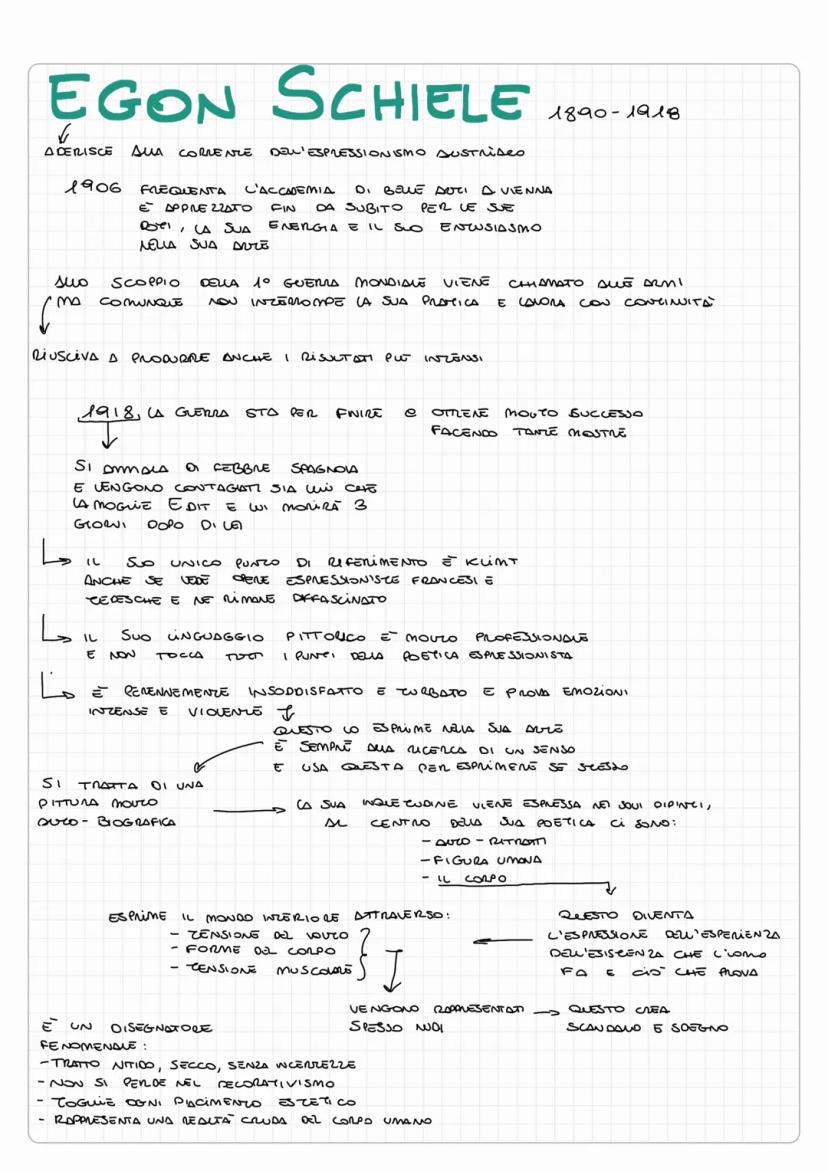 EGON SCHIELE 1890-1918
ADERISCE ALLA CORRENTE DELL'ESPRESSIONISMO AUSTRIACO
1906 FREQUENTA L'ACCADEMIA DI BELLE ARTI A VIENNA
E' APPREZZATO FIN DA SUBITO PER LE SUE
DOTI, LA SUA ENERGIA E IL SUO ENTUSIASMO
NELLA SUA ARTE
ALLO SCOPPIO DELLA 1° GUERRA MONDIALE VIENE CHIAMATO ALLE ARMI
MA COMUNQUE NON INTERROMPE LA SUA PRATICA E LAVORA CON CONTINUITA'
RIUSCIVA A PRODURRE ANCHE I RISULTATI PIU' INTENSI
1918, LA GUERRA STA PER FINIRE e OTTIENE MOLTO SUCCESSO
FACENDO TANTE MOSTRE
SI AMMALA DI FEBBRE SPAGNOLA
E VENGONO CONTAGIATI SIA LUI CHE
LA MOGLIE EDIT E LUI MORIRA' 3
GIORNI DOPO DI LEI
IL SUO UNICO PUNTO DI RIFERIMENTO E' KLIMT
ANCHE SE VEDE OPERE ESPRESSIONISTE FRANCESI E
TEDESCHE E NE RIMANE AFFASCINATO
IL SUO LINGUAGGIO PITTORICO E' MOLTO PROFESSIONALE
E NON TOCCA TUTTI I PUNTI DELLA POETICA ESPRESSIONISTA
E' PERENNEMENTE INSODDISFATTO E TURBATO E PROVA EMOZIONI
INTENSE E VIOLENTE
QUESTO LO ESPRIME NELLA SUA ARTE
E' SEMPRE ALLA RICERCA DI UN SENSO
E USA QUESTA PER ESPRIMERE SE STESSO
SI TRATTA DI UNA
PITTURA MOLTO
AUTO-BIOGRAFICA
LA SUA INQUIETUDINE VIENE ESPRESSA NEI SUOI DIPINTI,
AL CENTRO DELLA SUA POETICA CI SONO:
- AUTO-RITRATTI
- FIGURA UMANA
- IL CORPO
ESPRIME IL MONDO INTERIORE ATTRAVERSO:
- TENSIONE DEL VOLTO
- FORME DEL CORPO
- TENSIONE MUSCOLARE
QUESTO DIVENTA
L'ESPRESSIONE DELL'ESPERIENZA
DELL'ESISTENZA CHE L'UOMO
FA E CIO' CHE PROVA
VENGONO RAPPRESENTATI
SPESSO NUDI
QUESTO CREA
SCANDALO E SDEGNO
E' UN DISEGNATORE
FENOMENALE:
- TRATTO NITIDO, SECCO, SENZA INCERTEZZE
- NON SI PERDE NEL DECORATIVISMO
- TOGLIE OGNI PIACIMENTO ESTETICO
- RAPPRESENTA UNA REALTA' CRUDA DEL CORPO UMANO